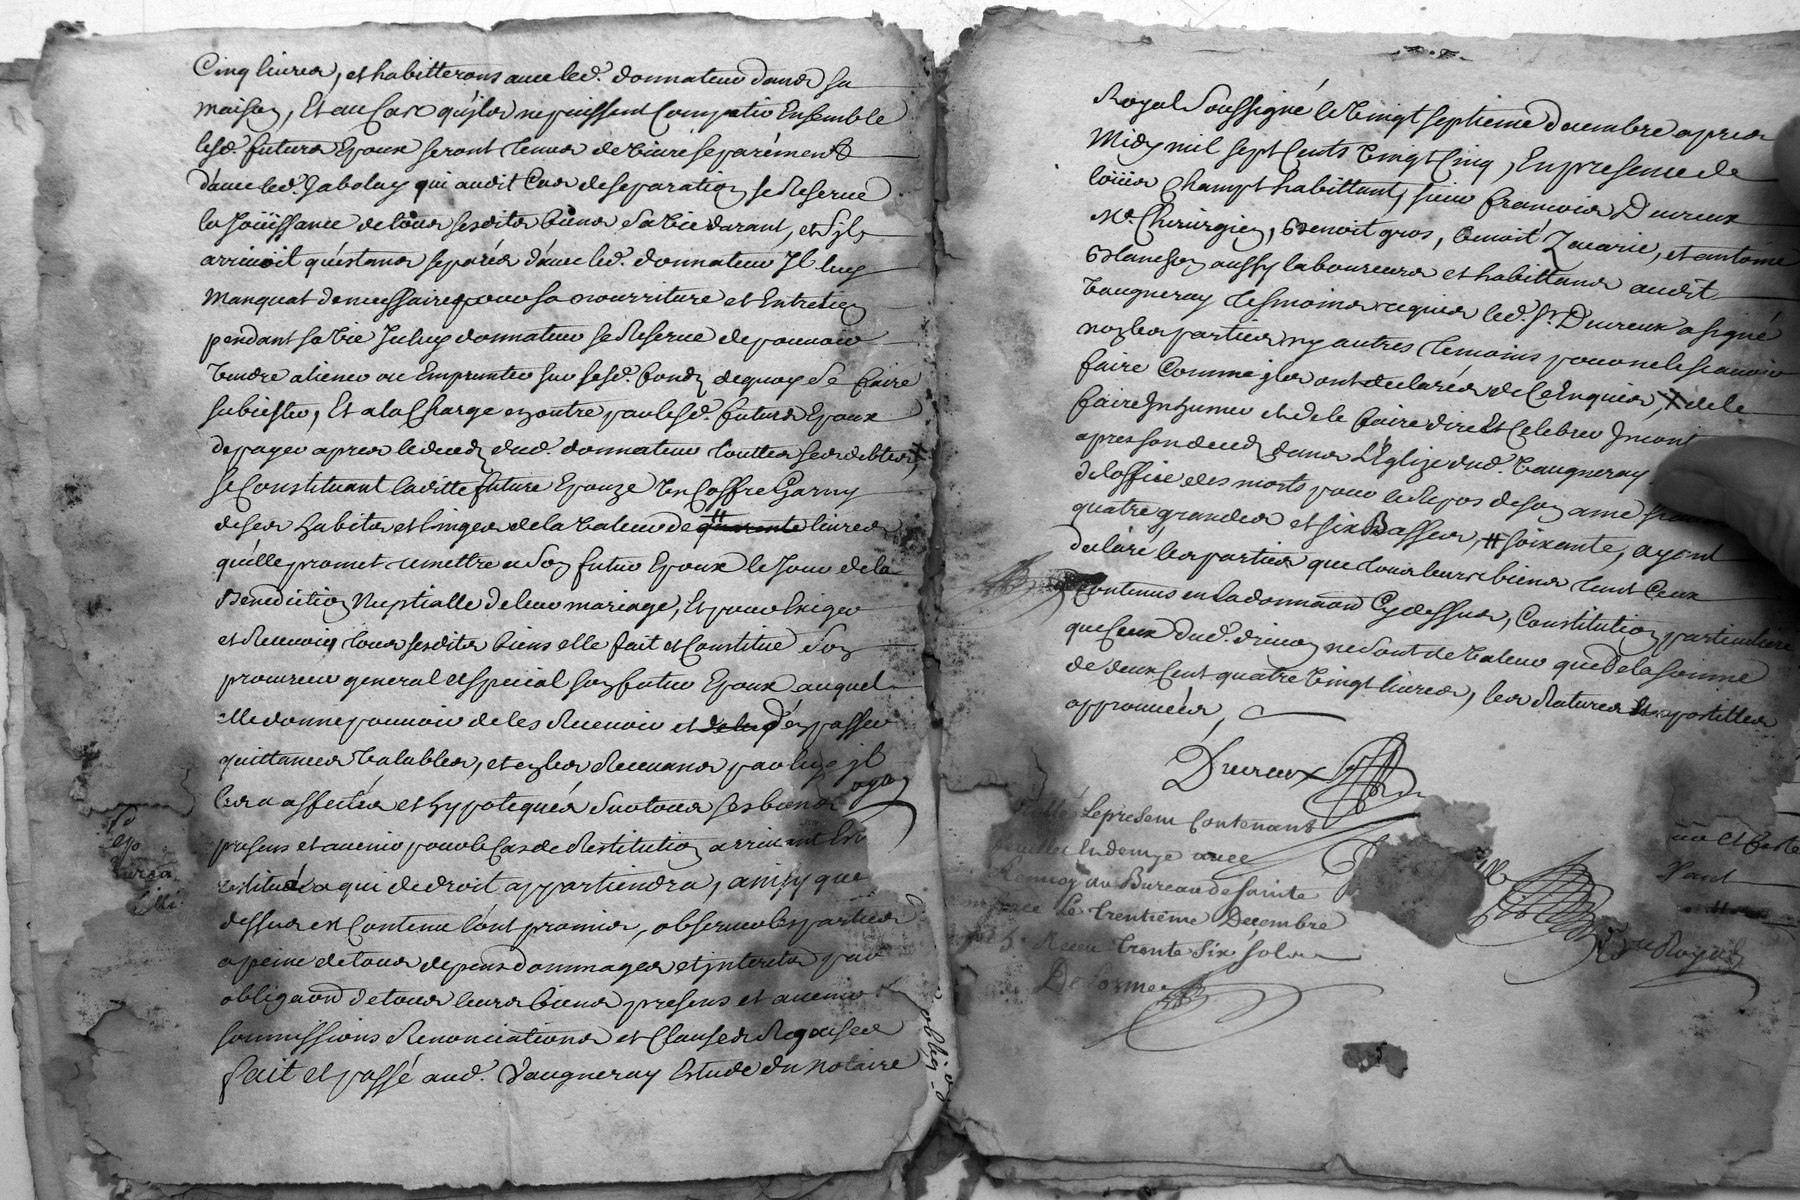 Cinq livres, et habitteront avec led. donnateur dans sa
maison, Et au Cas qu'jls ne puissent Compatir Ensemble
lesd. futurs Epoux seront tenus de vivre separément
d'avec led. qui audit Cas de separation se Reserve
la Joüissance de tous sesdits biens sa vie durant, et s'il
arrivoit qu'éstans separés d'avec led. donnateur Il luy
manquat de necessaire pour sa nourriture et Entretien
pendant sa vie Iceluy donnateur se Reserve de pouvoir
vendre aliener ou Emprunter sur sesd. fonds dequoy se faire
subsister, Et a la Charge en outre par lesd. futurs Epoux
de payer apres le deceds dud. donnateur touttes ses debtes,
se Constituant laditte future Epouze Un Coffre Garny
de ses habits et linges de la valeur de quarante livres
qu'elle promet remettre a son futur Epoux le Jour de la
Benediction Nuptialle de leur mariage, Et pour Exiger
et Recevoir tous sesdits biens elle fait et Constitue son
procureur general et special son futur Epoux auquel
elle donne pouvoir de les Recevoir et d'en passer
quittances valables, et en les Recevant par luy jl
les a affectés et hypotequés sur tous ses biens
presens et avenir pour le Cas de Restitution arrivant Est
restitués a qui de droit appartiendra, ainsy que
dessus est Contenu l'ont promis, observer les parties
a peine de tous depens dommages et interets par
obligaon de tous leurs biens presens et avenir
soumissions Renonciations et Clauses Requises
fait et passé aud. Vaugneray Estude du Notaire
oblig
Royal soussigné le vingt septieme decembre apres
Midy mil sept Cents vingt Cinq, En presence de
Champt habittant, sieur francois Ducreux
Me. Chirurgien, Benoit gros, Benoit Zacarie, et antoine
Blanchon aussy laboureurs et habittans audit
Vaugneray tesmoins requis led. Sr. Ducreux a signé
non les parties ny autres temoins pour ne le scavoir
faire Comme jls ont declarés de Ce Enquis, X de le
faire Inhumer et de le faire dire Et Celebrer
apres son deceds dans L'Eglize dud. Vaugneray
de l'office des morts pour le Repos de son ame
quatre grandes et six Basses, # soixante, ayant
declaré les parties que tous leurs biens tant Ceux
Contenus en la donnaon Cy dessus, Constitution particuliere
que Ceux dud. ne sont de valeur que De la somme
de deux Cent quatre vingt livres, les Ratures Et postilles
approuvées,
Ducreux
Le present Contenant
Bureau de Sainte
Le trentieme Decembre
Receu trente six sols
Delorme
Royal